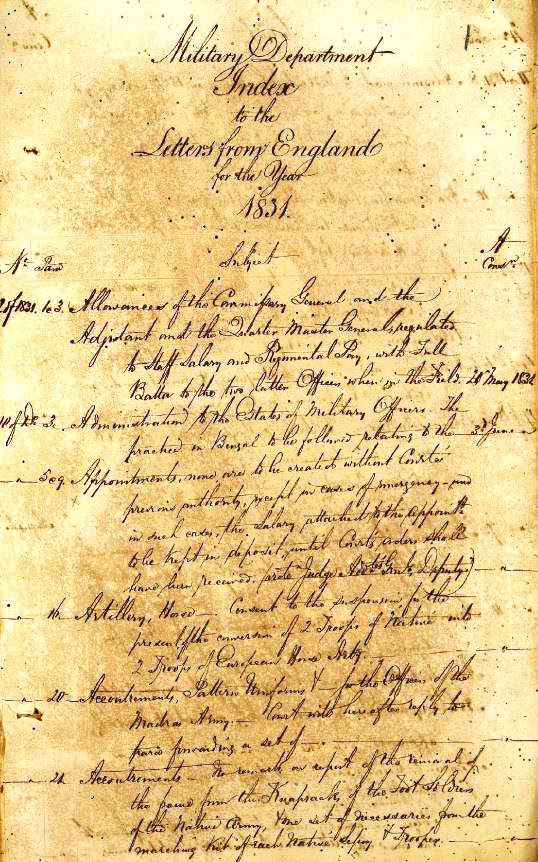 1
Military Department
Index
to the
Letters from England
for the Year
1831.
A
No. Para Subject Consn.
2 of 1831. 1 @ 3. Allowances of the Commissary General and the
Adjutant and the Quarter Master Generals, regulated
to Staff Salary and Regimental Pay, with Full
Batta to the two latter Officers when in the Field. 20 May 1831
10 of Do 3. Administration to the Estates of Military Officers. The
practice in Bengal to be followed relating to the 3d June "
" 5 @ 9. Appointments, none are to be created without Courts
previous authority, except in cases of emergency - and
in such cases, the salary attached to the appointt.
to be kept in deposit, until Courts orders shall
have been received. Judge Deputy) "
" 16 Artillery, Horse. Consent to the suspension for the
present of the conversion of 2 Troops of Native into
2 Troops of European Horse Arty. "
" 20 Accoutrements, Pattern Uniforms & for the Officers of the
Madras Army. - Court will hereafter reply to
para forwarding a set of "
" 21 Accoutrements - No remarks on report of the removal of
the from the Knapsacks of the Foot Soldiers
of the Native Army, & one set of necessaries from the
marching kit of each Native Sepoy & Trooper. "